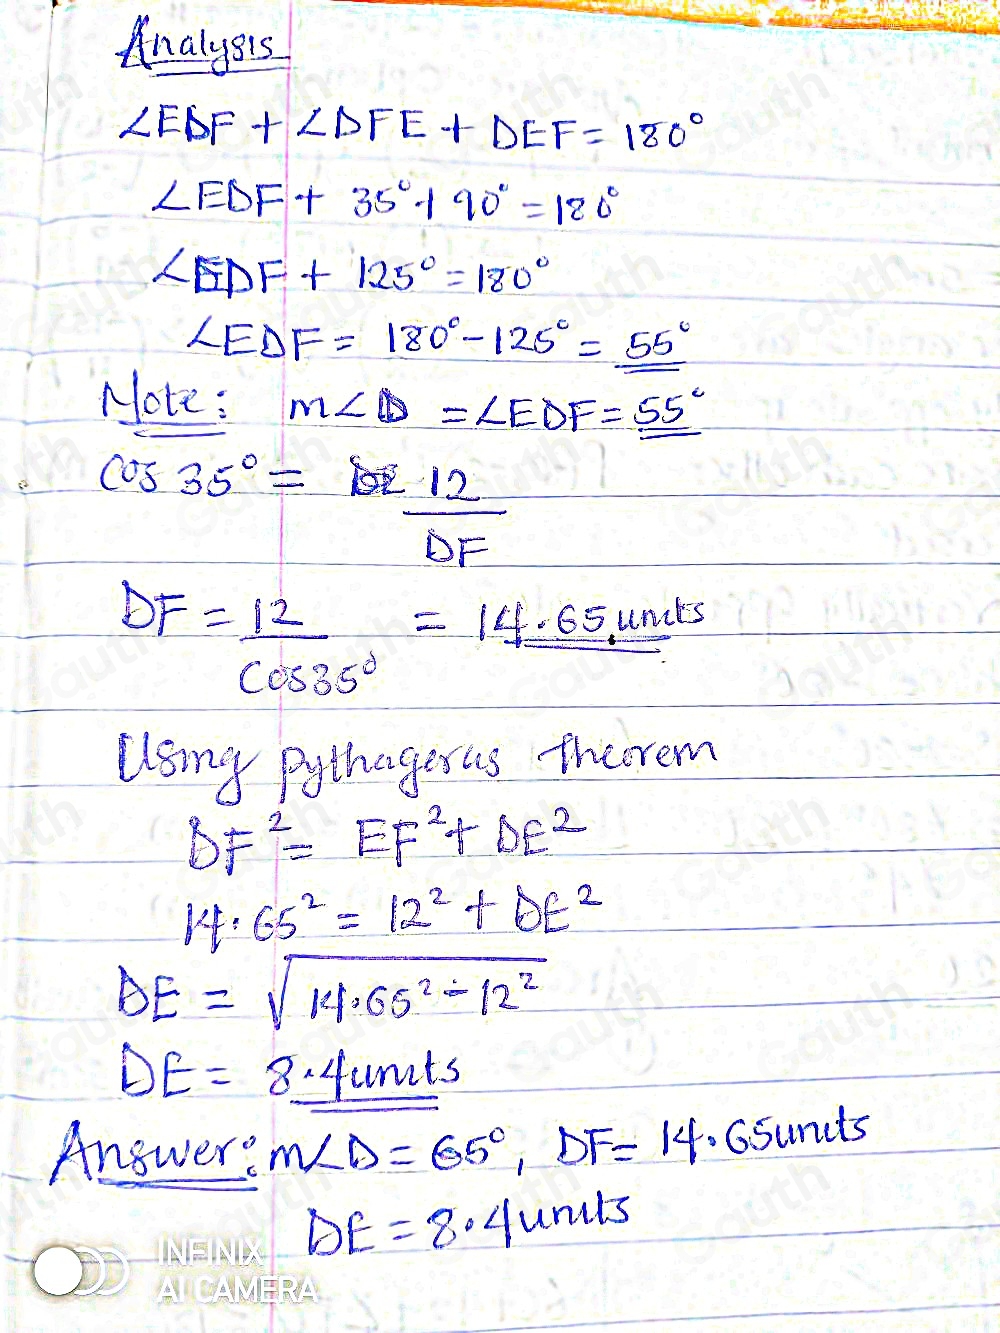 Analysis
∠EDF + ∠DFE + DEF = 180°
∠EDF + 35° + 90° = 180°
∠EDF + 125° = 180°
∠EDF = 180° - 125° = 55°
Note: m∠D = ∠EDF = 55°
Cos 35° = 12 / DF
DF = 12 / Cos35° = 14.65 units
Using pythageras theorem
DF² = EF² + DE²
14.65² = 12² + DE²
DE = √(14.65² - 12²)
DE = 8.4 units
Answer: m∠D = 65°, DF = 14.65 units
DE = 8.4 units
INFINIX
AI CAMERA